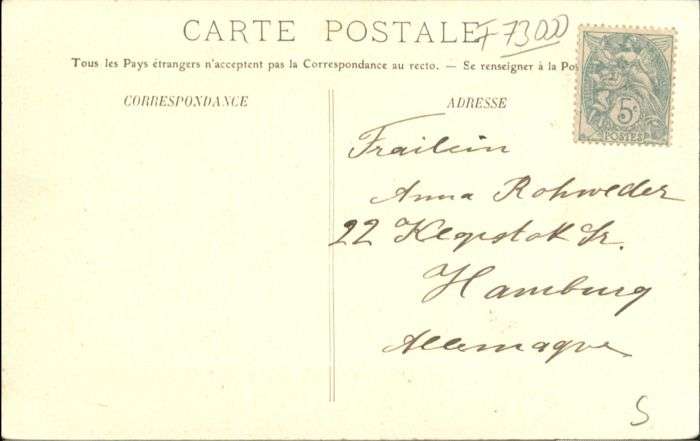 CARTE POSTALE
F 73000
Tous les Pays étrangers n'acceptent pas la Correspondance au recto. — Se renseigner à la Po
CORRESPONDANCE
ADRESSE
5c
POSTES
Frailein
Anna Rohweder
22 Klopstok Sr.
Hamburg
Allemagne
S